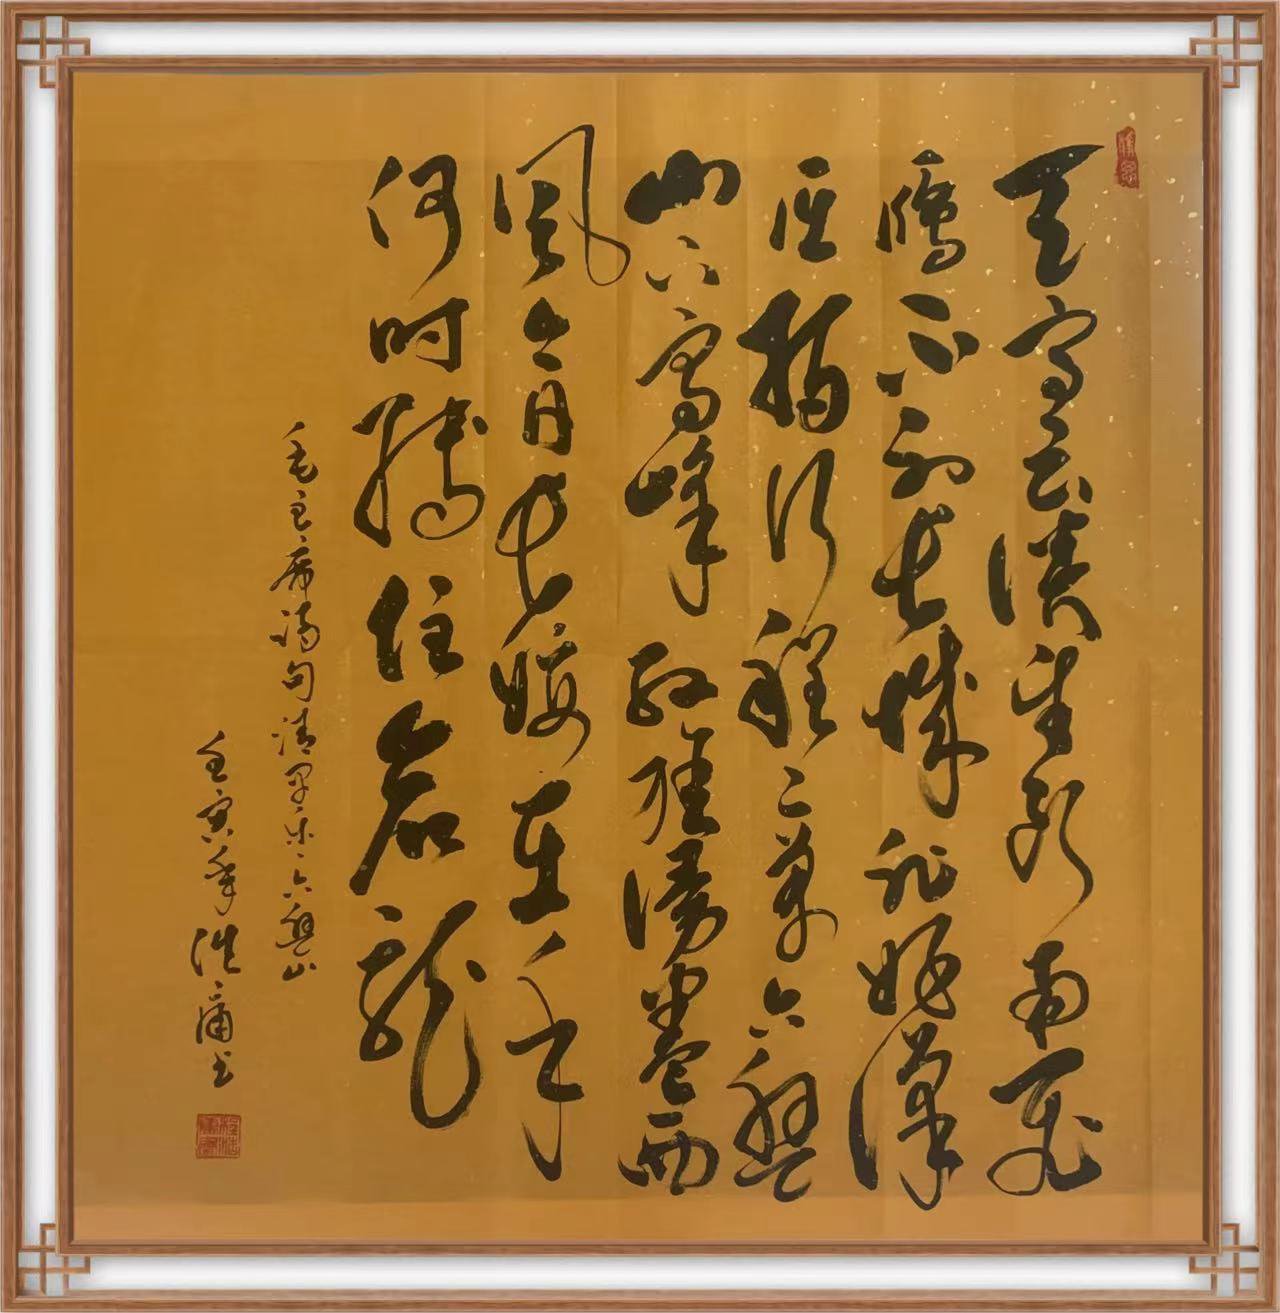 天高云淡望断南飞
雁不到长城非好汉
屈指行程二万六盘
山上高峰红旗漫卷西
风今日长缨在手
何时缚住苍龙
毛主席诗句清平乐六盘山
壬寅年书